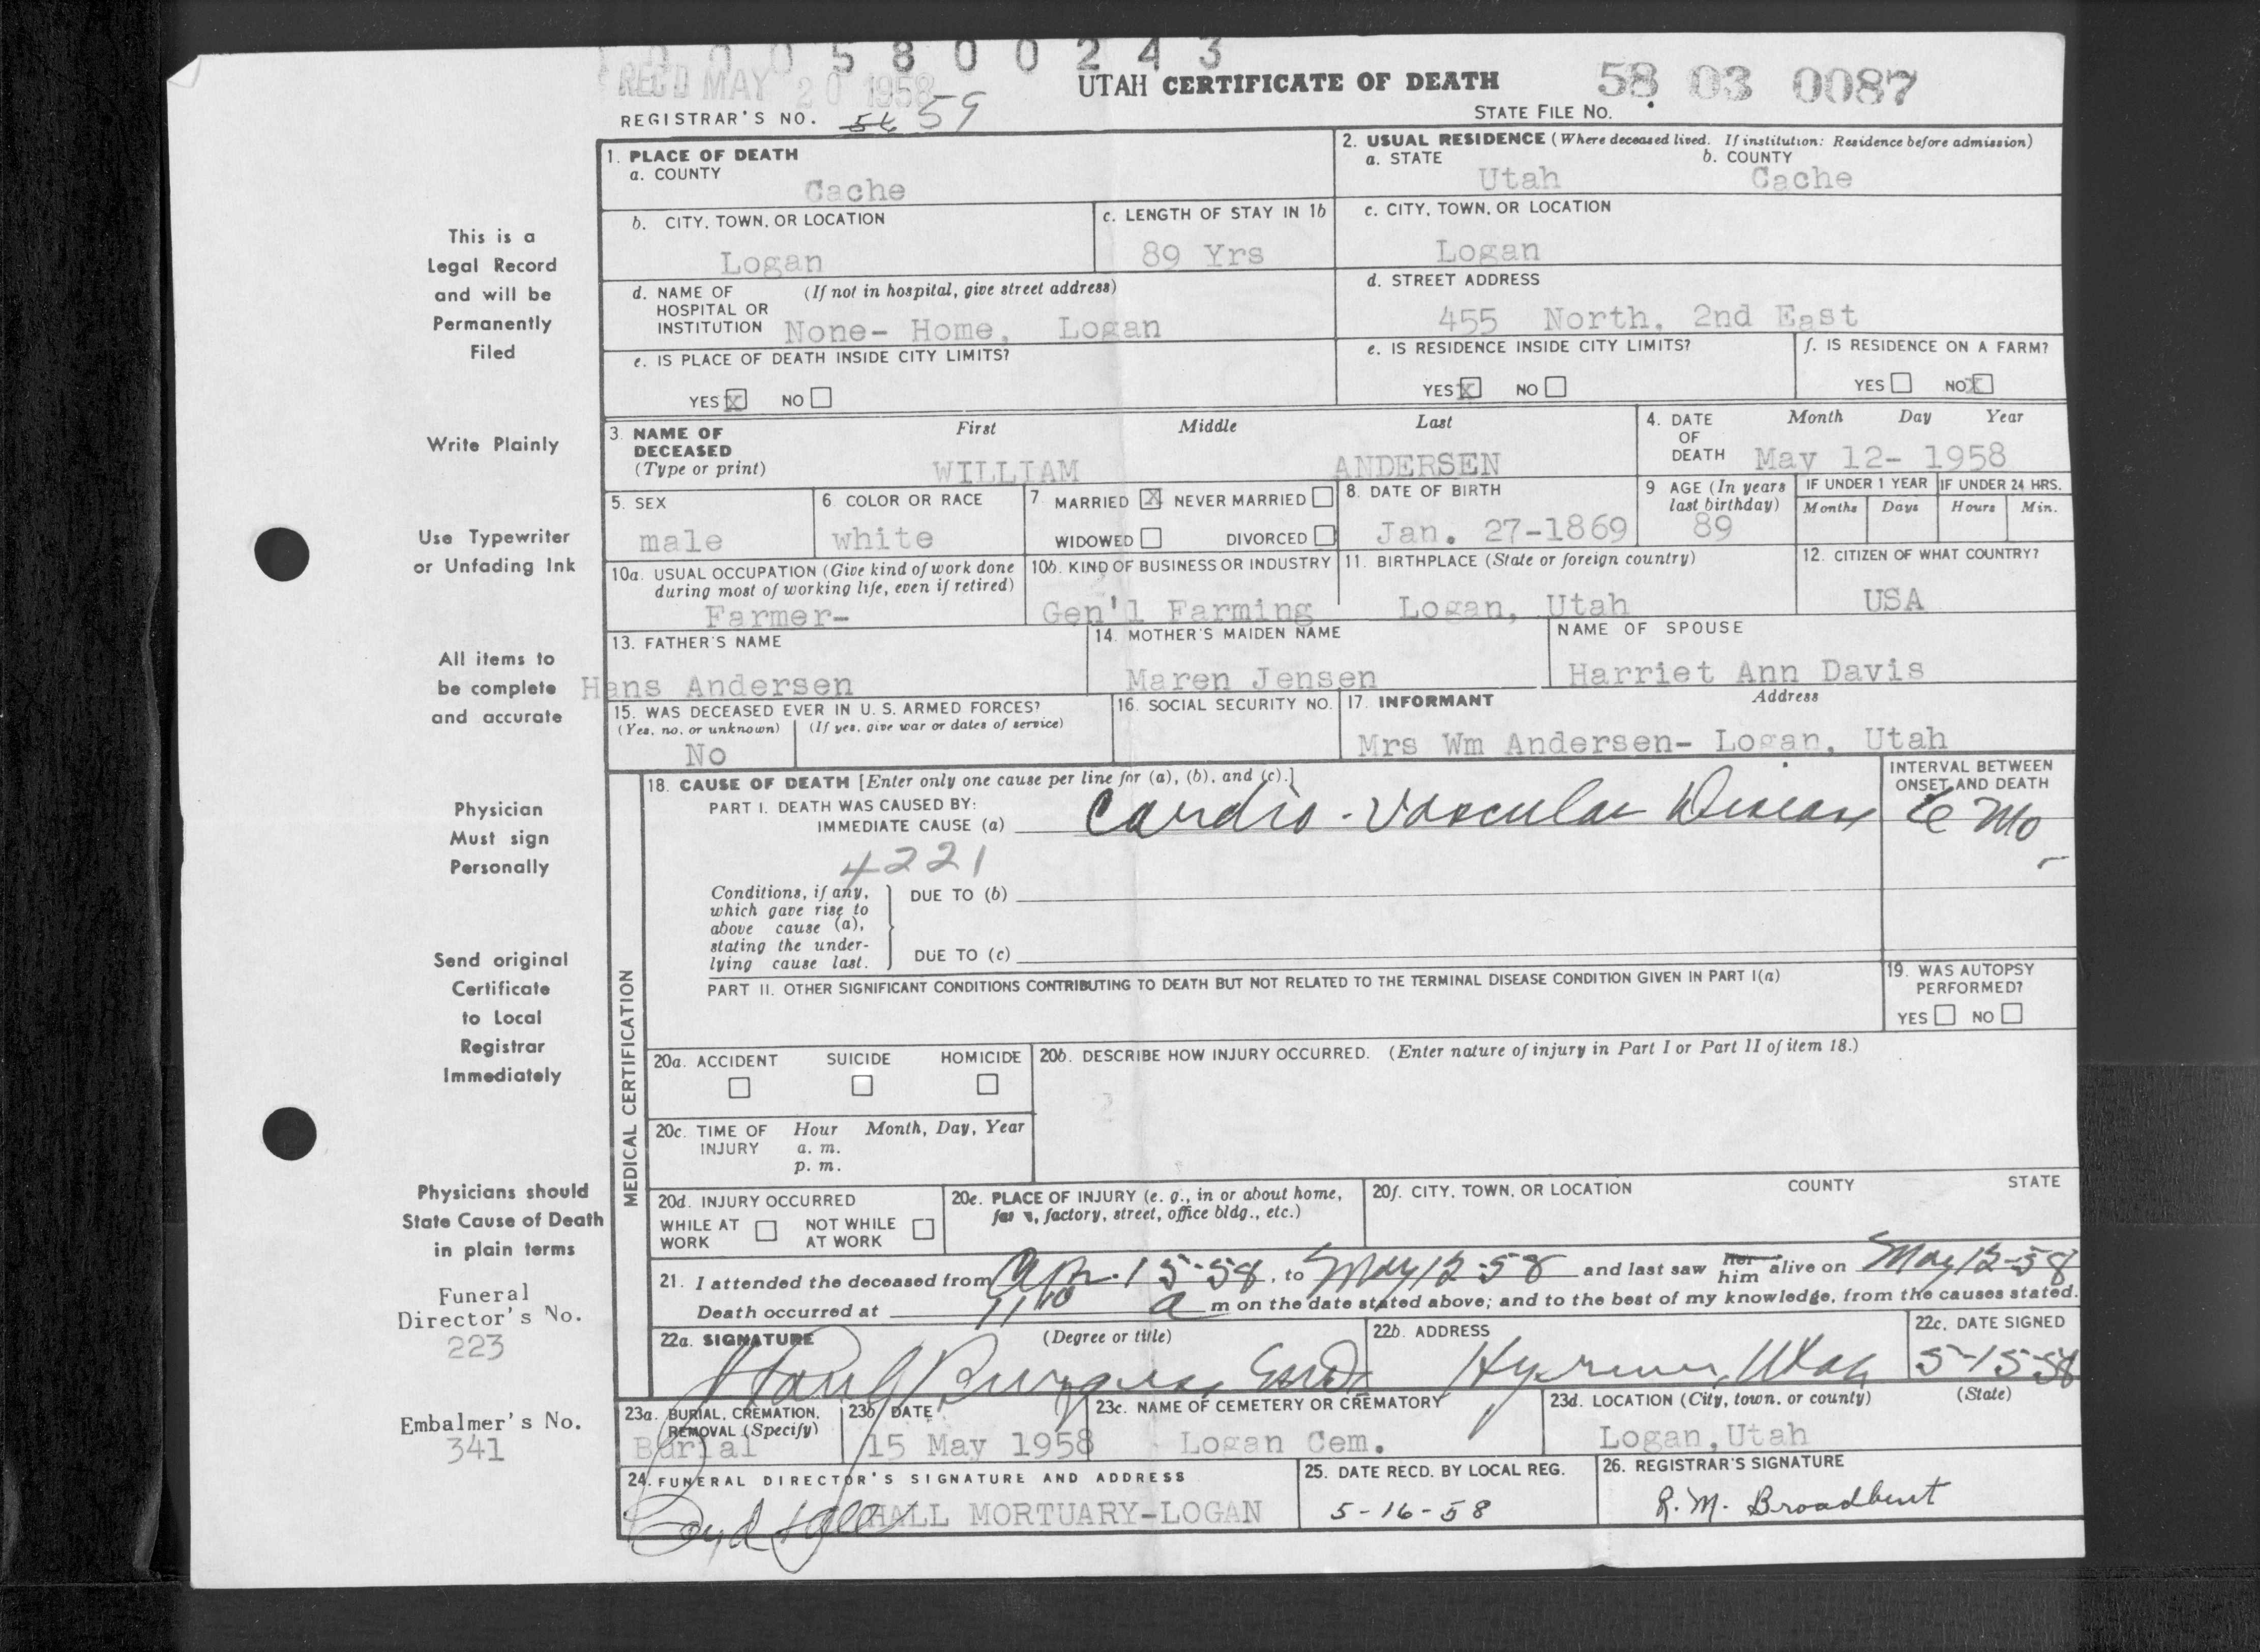 0005800243
REC'D MAY 20 1958
UTAH CERTIFICATE OF DEATH
58 03 0087
REGISTRAR'S NO. 56 59
STATE FILE NO.
1. PLACE OF DEATH
a. COUNTY
Cache
2. USUAL RESIDENCE (Where deceased lived. If institution: Residence before admission)
a. STATE b. COUNTY
Utah Cache
b. CITY, TOWN, OR LOCATION
Logan
c. LENGTH OF STAY IN 1b
89 Yrs
c. CITY, TOWN, OR LOCATION
Logan
d. NAME OF (If not in hospital, give street address)
HOSPITAL OR
INSTITUTION None- Home, Logan
d. STREET ADDRESS
455 North, 2nd East
e. IS PLACE OF DEATH INSIDE CITY LIMITS?
YES X NO
e. IS RESIDENCE INSIDE CITY LIMITS?
YES X NO
f. IS RESIDENCE ON A FARM?
YES NO X
3. NAME OF DECEASED (Type or print)
First Middle Last
WILLIAM ANDERSEN
4. DATE OF DEATH
Month Day Year
May 12- 1958
5. SEX
male
6. COLOR OR RACE
white
7. MARRIED X NEVER MARRIED
WIDOWED DIVORCED
8. DATE OF BIRTH
Jan. 27-1869
9 AGE (In years last birthday)
89
IF UNDER 1 YEAR IF UNDER 24 HRS.
Months Days Hours Min.
10a. USUAL OCCUPATION (Give kind of work done
during most of working life, even if retired)
Farmer-
10b. KIND OF BUSINESS OR INDUSTRY
Gen'l Farming
11. BIRTHPLACE (State or foreign country)
Logan, Utah
12. CITIZEN OF WHAT COUNTRY?
USA
13. FATHER'S NAME
Hans Andersen
14. MOTHER'S MAIDEN NAME
Maren Jensen
NAME OF SPOUSE
Harriet Ann Davis
15. WAS DECEASED EVER IN U. S. ARMED FORCES?
(Yes, no, or unknown) (If yes, give war or dates of service)
No
16. SOCIAL SECURITY NO.
17. INFORMANT Address
Mrs Wm Andersen- Logan, Utah
MEDICAL CERTIFICATION
18. CAUSE OF DEATH [Enter only one cause per line for (a), (b), and (c).]
PART I. DEATH WAS CAUSED BY:
IMMEDIATE CAUSE (a) Cardio-Vascular Disease
INTERVAL BETWEEN
ONSET AND DEATH
6 Mo
4221
Conditions, if any,
which gave rise to
above cause (a),
stating the under-
lying cause last.
DUE TO (b)
DUE TO (c)
PART II. OTHER SIGNIFICANT CONDITIONS CONTRIBUTING TO DEATH BUT NOT RELATED TO THE TERMINAL DISEASE CONDITION GIVEN IN PART I(a)
19. WAS AUTOPSY
PERFORMED?
YES NO
20a. ACCIDENT SUICIDE HOMICIDE
20b. DESCRIBE HOW INJURY OCCURRED. (Enter nature of injury in Part I or Part II of item 18.)
20c. TIME OF INJURY
Hour Month, Day, Year
a. m.
p. m.
20d. INJURY OCCURRED
WHILE AT WORK NOT WHILE AT WORK
20e. PLACE OF INJURY (e. g., in or about home,
farm, factory, street, office bldg., etc.)
20f. CITY, TOWN, OR LOCATION COUNTY STATE
21. I attended the deceased from Apr. 15-58, to May 12-58 and last saw her him alive on May 12-58
Death occurred at 11 10 a m on the date stated above; and to the best of my knowledge, from the causes stated.
22a. SIGNATURE (Degree or title)
22b. ADDRESS
Hyrum, Utah
22c. DATE SIGNED
5-15-58
23a. BURIAL, CREMATION,
REMOVAL (Specify)
Burial
23b. DATE
15 May 1958
23c. NAME OF CEMETERY OR CREMATORY
Logan Cem.
23d. LOCATION (City, town, or county) (State)
Logan, Utah
24. FUNERAL DIRECTOR'S SIGNATURE AND ADDRESS
HALL MORTUARY-LOGAN
25. DATE RECD. BY LOCAL REG.
5-16-58
26. REGISTRAR'S SIGNATURE
R. M. Broadbent
This is a
Legal Record
and will be
Permanently
Filed
Write Plainly
Use Typewriter
or Unfading Ink
All items to
be complete
and accurate
Physician
Must sign
Personally
Send original
Certificate
to Local
Registrar
Immediately
Physicians should
State Cause of Death
in plain terms
Funeral
Director's No.
223
Embalmer's No.
341